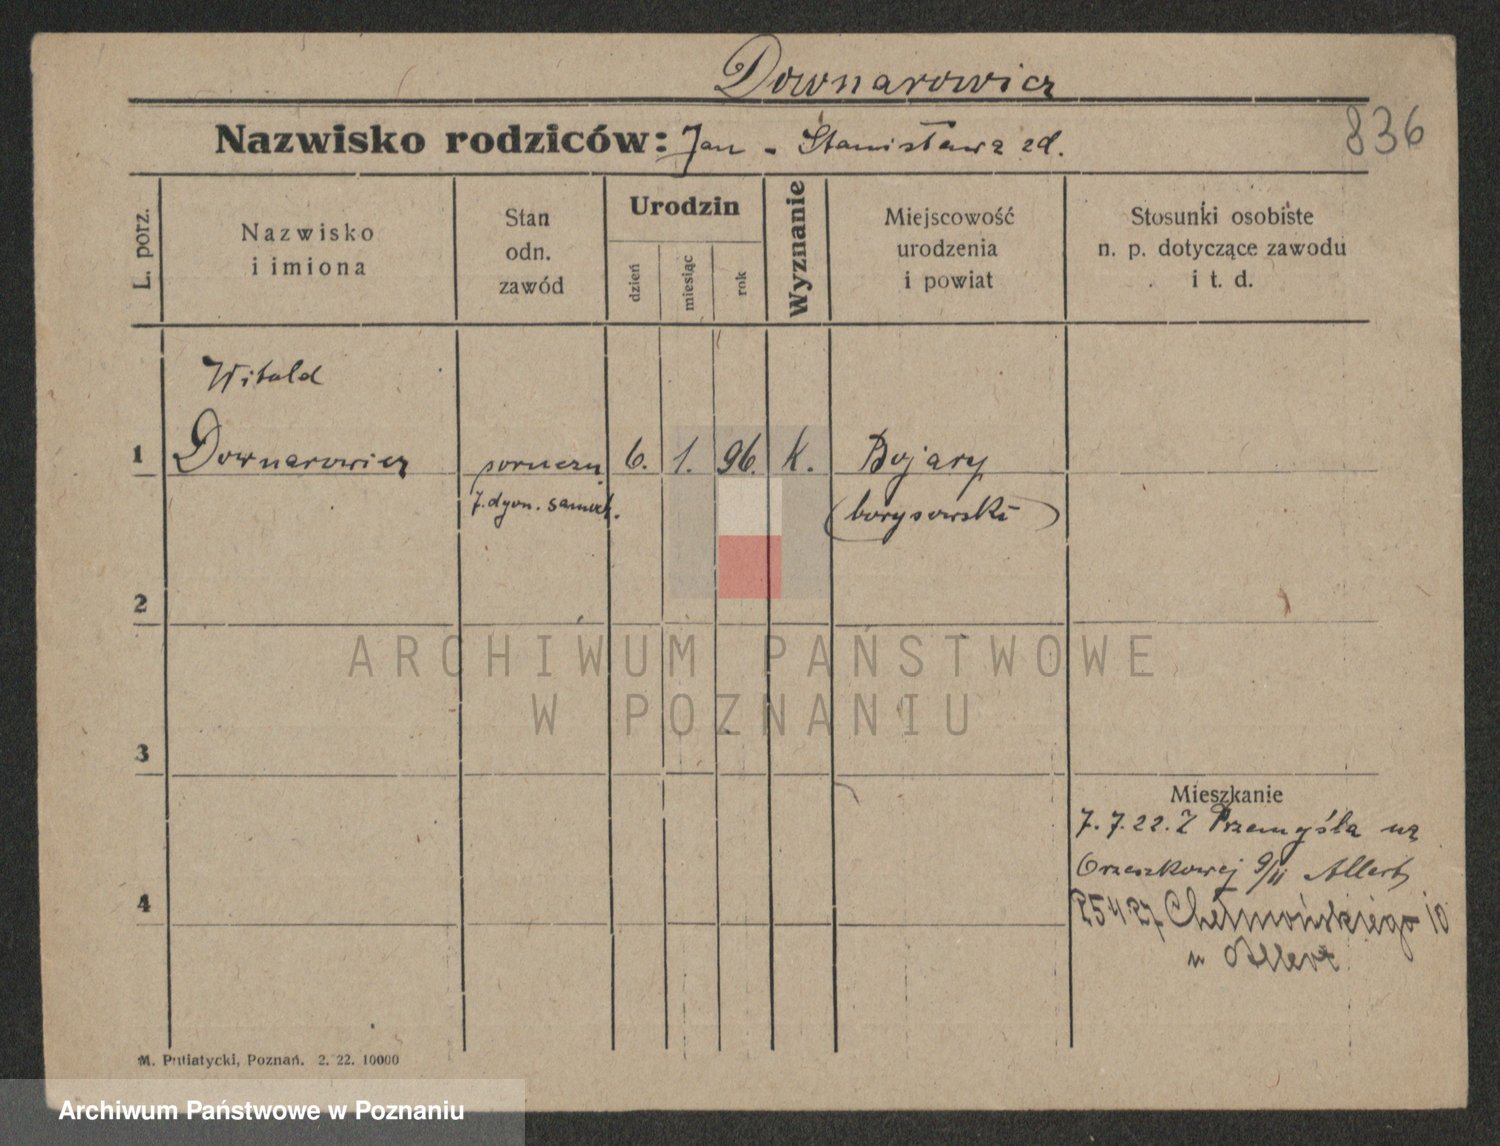 Downarowicz
Nazwisko rodziców: Jan - Stanisława zd.
836
L. porz.
Nazwisko
i imiona
Stan
odn.
zawód
Urodzin
dzień
miesiąc
rok
Wyznanie
Miejscowość
urodzenia
i powiat
Stosunki osobiste
n. p. dotyczące zawodu
i t. d.
Witold
1 Downarowicz porucz. 6. 1. 96. K. Bojary
7. dyon. samoch. (borysowski)
2
ARCHIWUM PAŃSTWOWE
W POZNANIU
3
Mieszkanie
7. 7. 22. Z Przemyśla na
Orzeszkowej 9/II Allert
4
25 4 27 Chełmońskiego 10
u Allert
M. Putiatycki, Poznań. 2. 22. 10000
Archiwum Państwowe w Poznaniu